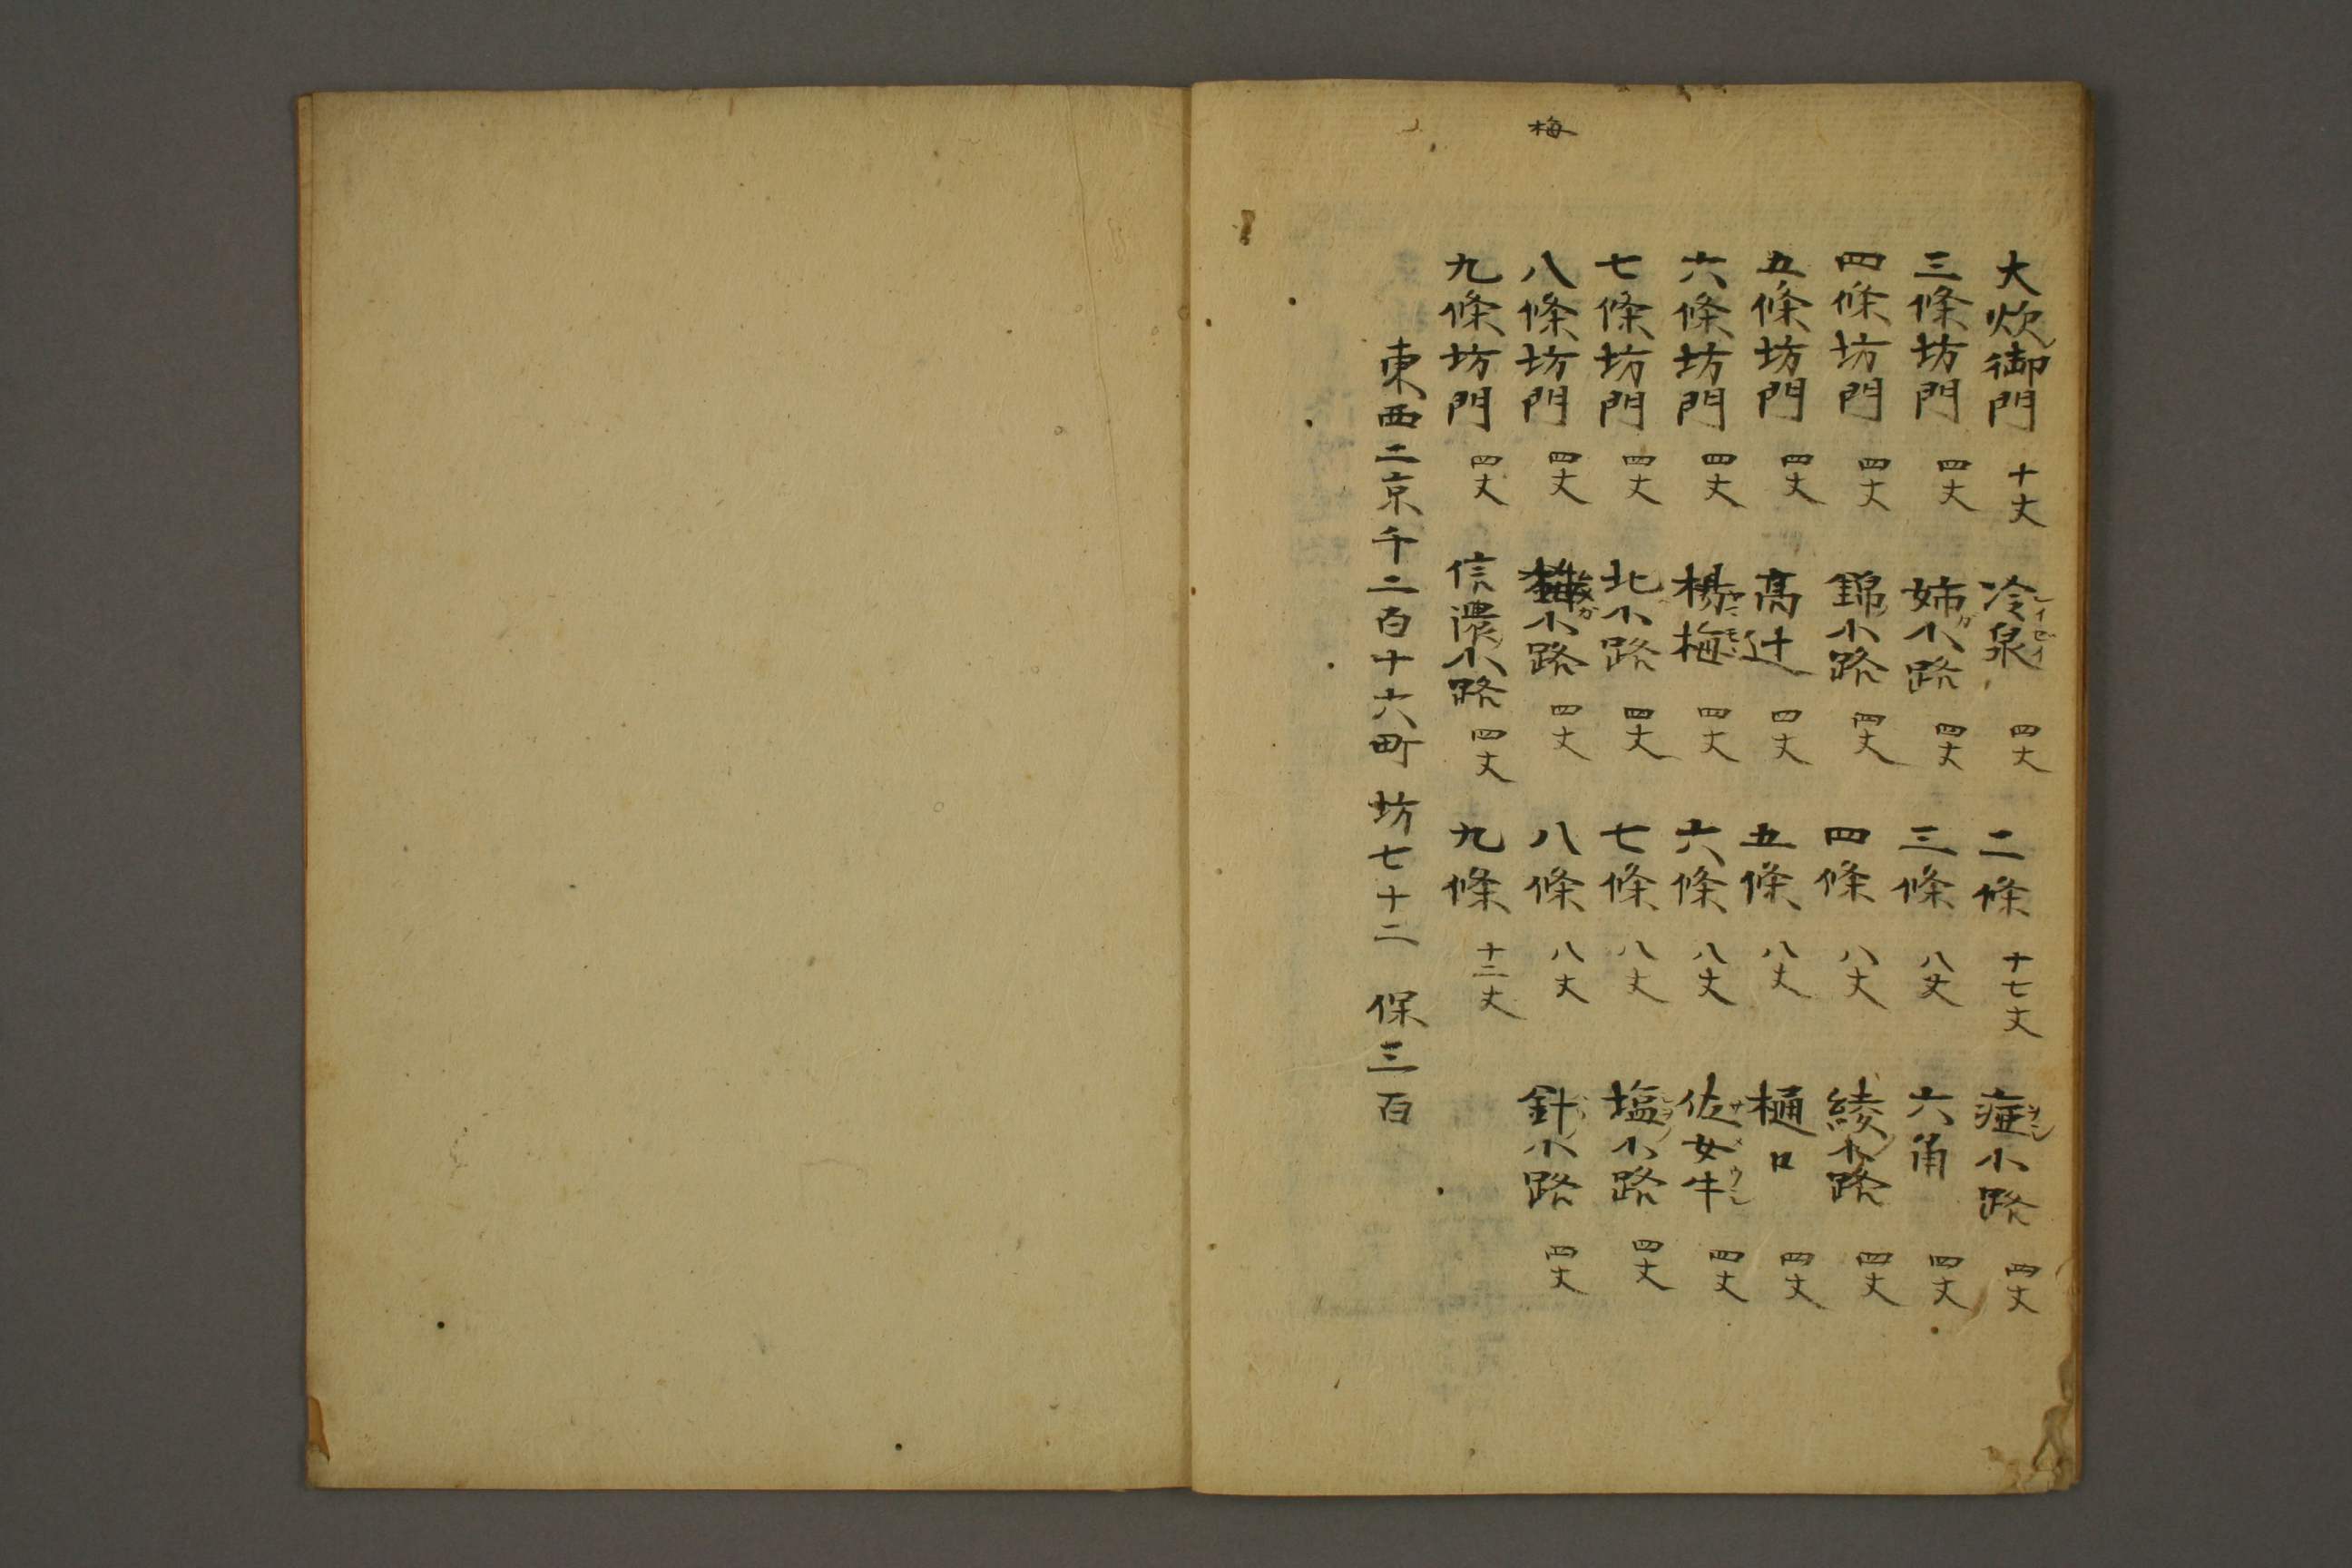 梅
大炊御門 十丈 冷泉 四丈 二條 十七丈 小路 四丈
三條坊門 四丈 姉小路 四丈 三條 八丈 六角 四丈
四條坊門 四丈 錦小路 四丈 四條 八丈 綾小路 四丈
五條坊門 四丈 髙辻 四丈 五條 八丈 樋口 四丈
六條坊門 四丈 楊梅 四丈 六條 八丈 佐女牛 四丈
七條坊門 四丈 北小路 四丈 七條 八丈 塩小路 四丈
八條坊門 四丈 小路 四丈 八條 八丈 針小路 四丈
九條坊門 四丈 信濃小路 四丈 九條 十二丈
東西二京千二百十六町 坊七十二 保三百